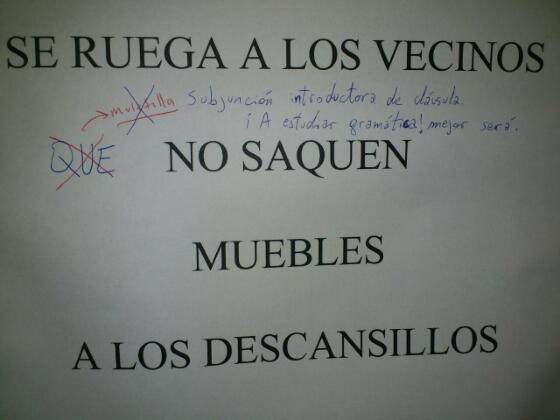 SE RUEGA A LOS VECINOS
muletilla Subjunción introductora de cláusula.
¡A estudiar gramática! mejor será.
QUE NO SAQUEN
MUEBLES
A LOS DESCANSILLOS